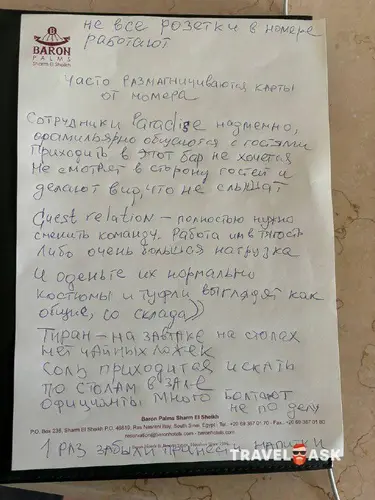 не все розетки в номере
работают
B
BARON
PALMS
Sharm El Sheikh
часто размагничиваются карты
от номера
Сотрудники Paradise надменно,
фамильярно общаются с гостями
Приходить в этот бар не хочется
Не смотрят в сторону гостей и
делают вид, что не слышат
Guest relation – полностью нужно
сменить команду. Работа им в тягость
Либо очень большая нагрузка
И оденьте их нормально
костюмы и туфли выглядят как
общие, со склада))
Тиран – на завтраке на столах
нет чайных ложек
Соль приходится искать
по столам в зале
официанты много болтают
не по делу
Baron Palms Sharm El Sheikh
P.O. Box 238, Sharm El Sheikh P.O. 46619, Ras Nasrani Bay, South Sinai, Egypt. Tel.: +20 69 367 01 70 - Fax: +20 69 367 01 80
reservation@baronhotels.com - baronhotels.com
1 раз забыли принести напитки
TRAVEL ASK